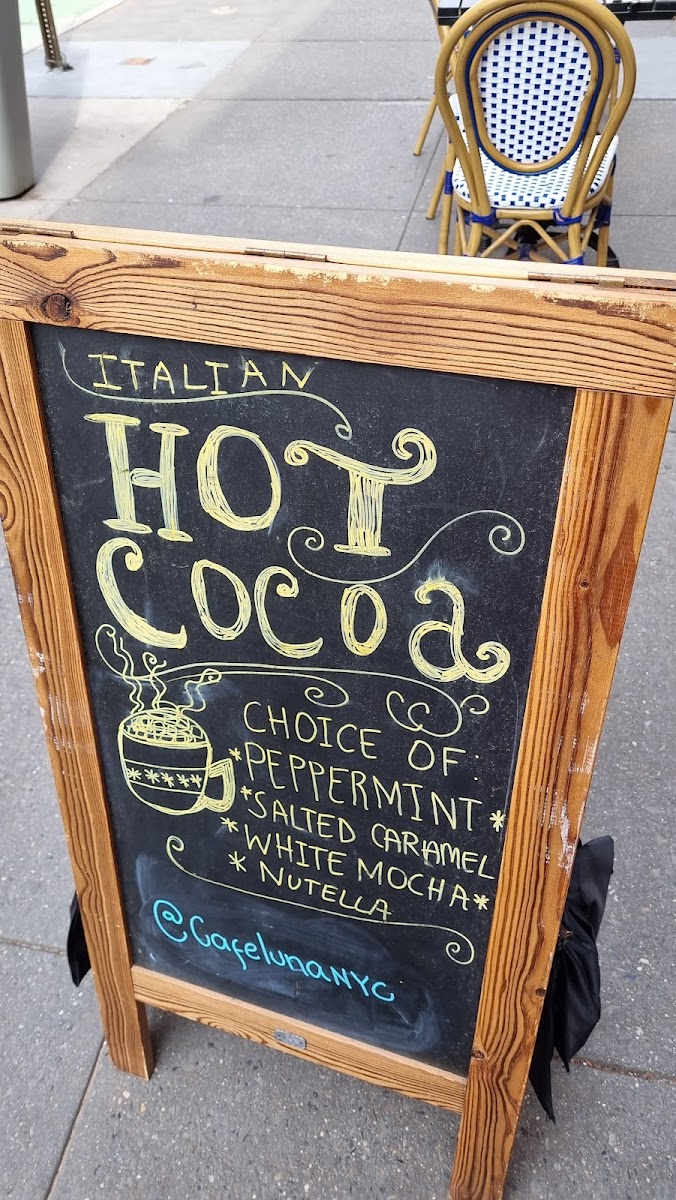 ITALIAN
HOT
COCOa
CHOICE OF:
*PEPPERMINT*
*SALTED CARAMEL
*WHITE MOCHA*
*NUTELLA
@CafelunaNYC